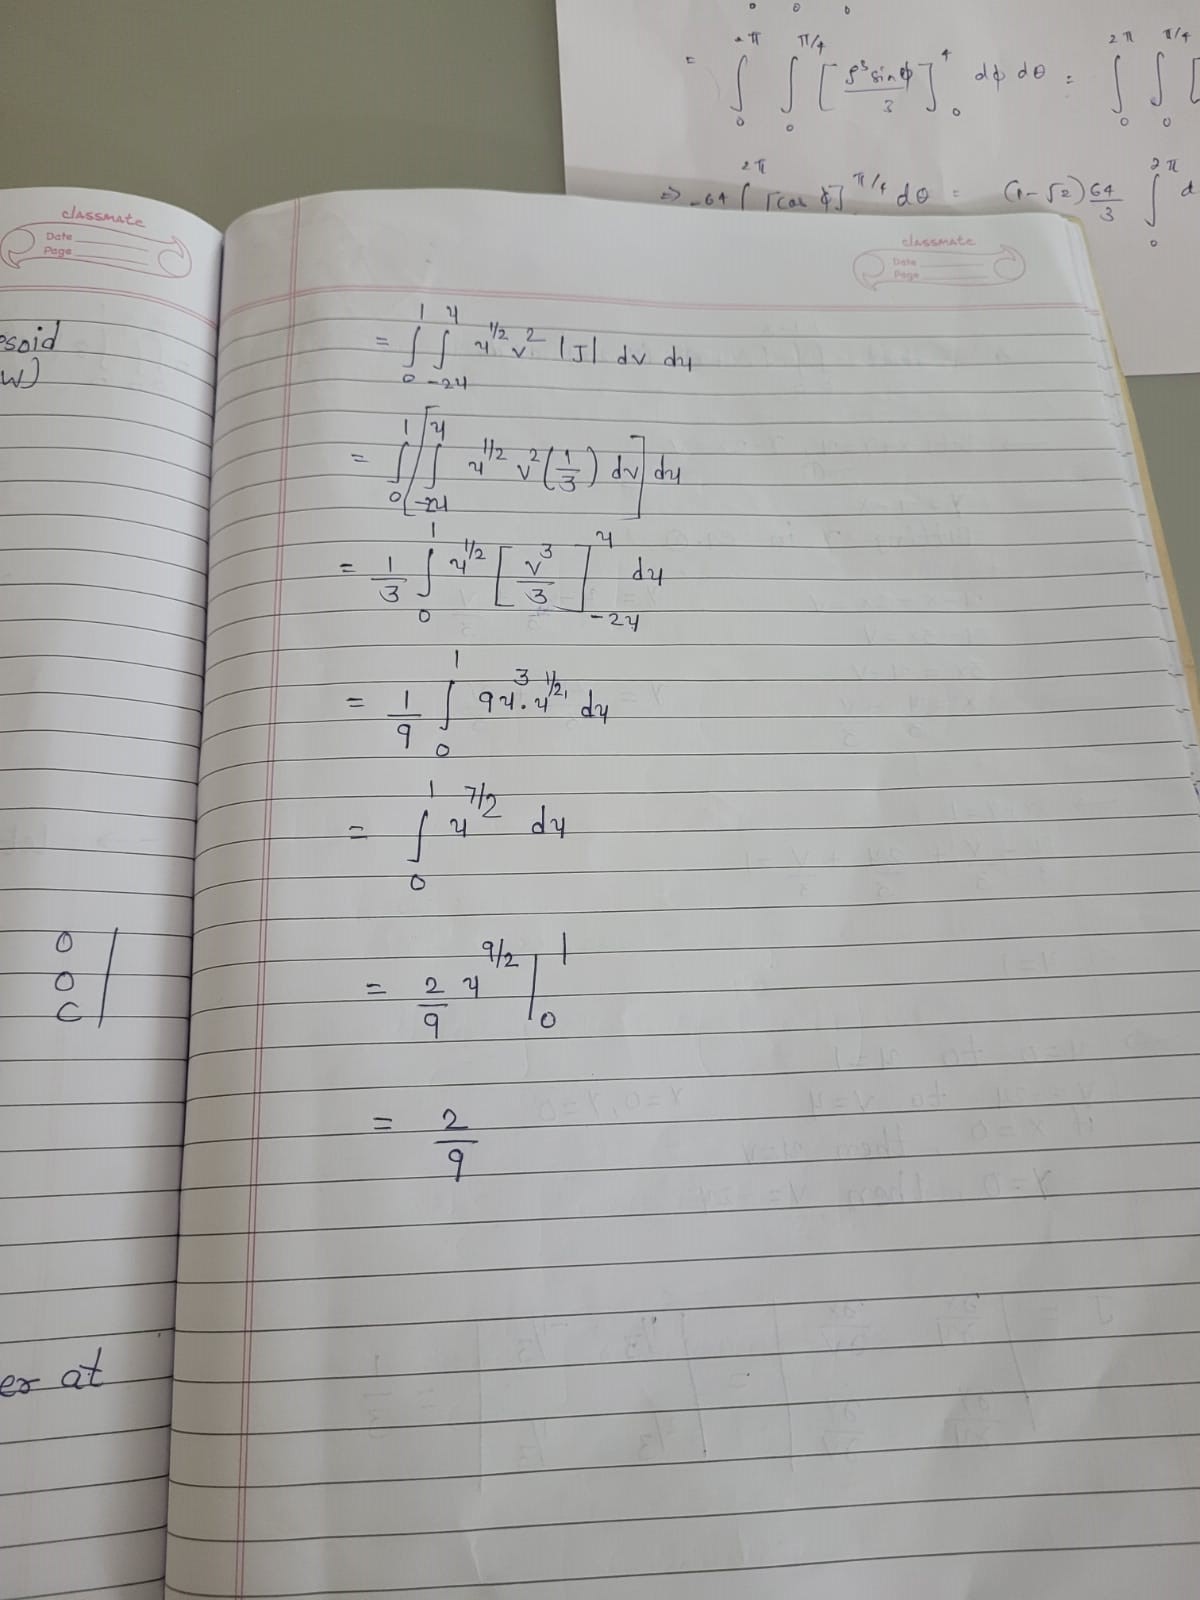 = ∫₀^2π ∫₀^π/4 [ρ³ sin φ / 3]₀^4 dφ dθ = ∫₀^2π ∫₀^π/4 [
=> -64 ∫^2π [cos φ]^π/4 dθ = (1-√2) 64/3 ∫₀^2π d
classmate
Date
Page
w)
0
0
C
er at
classmate
Date
Page
= ∫₀^1 ∫_-2u^u u^1/2 v² |J| dv du
= ∫₀^1 [∫_-2u^u u^1/2 v² (1/3) dv] du
= 1/3 ∫₀^1 u^1/2 [v³/3]_-2u^u du
= 1/9 ∫₀^1 9u³ · u^1/2 du
= ∫₀^1 u^7/2 du
= 2/9 u^9/2 |₀^1
= 2/9